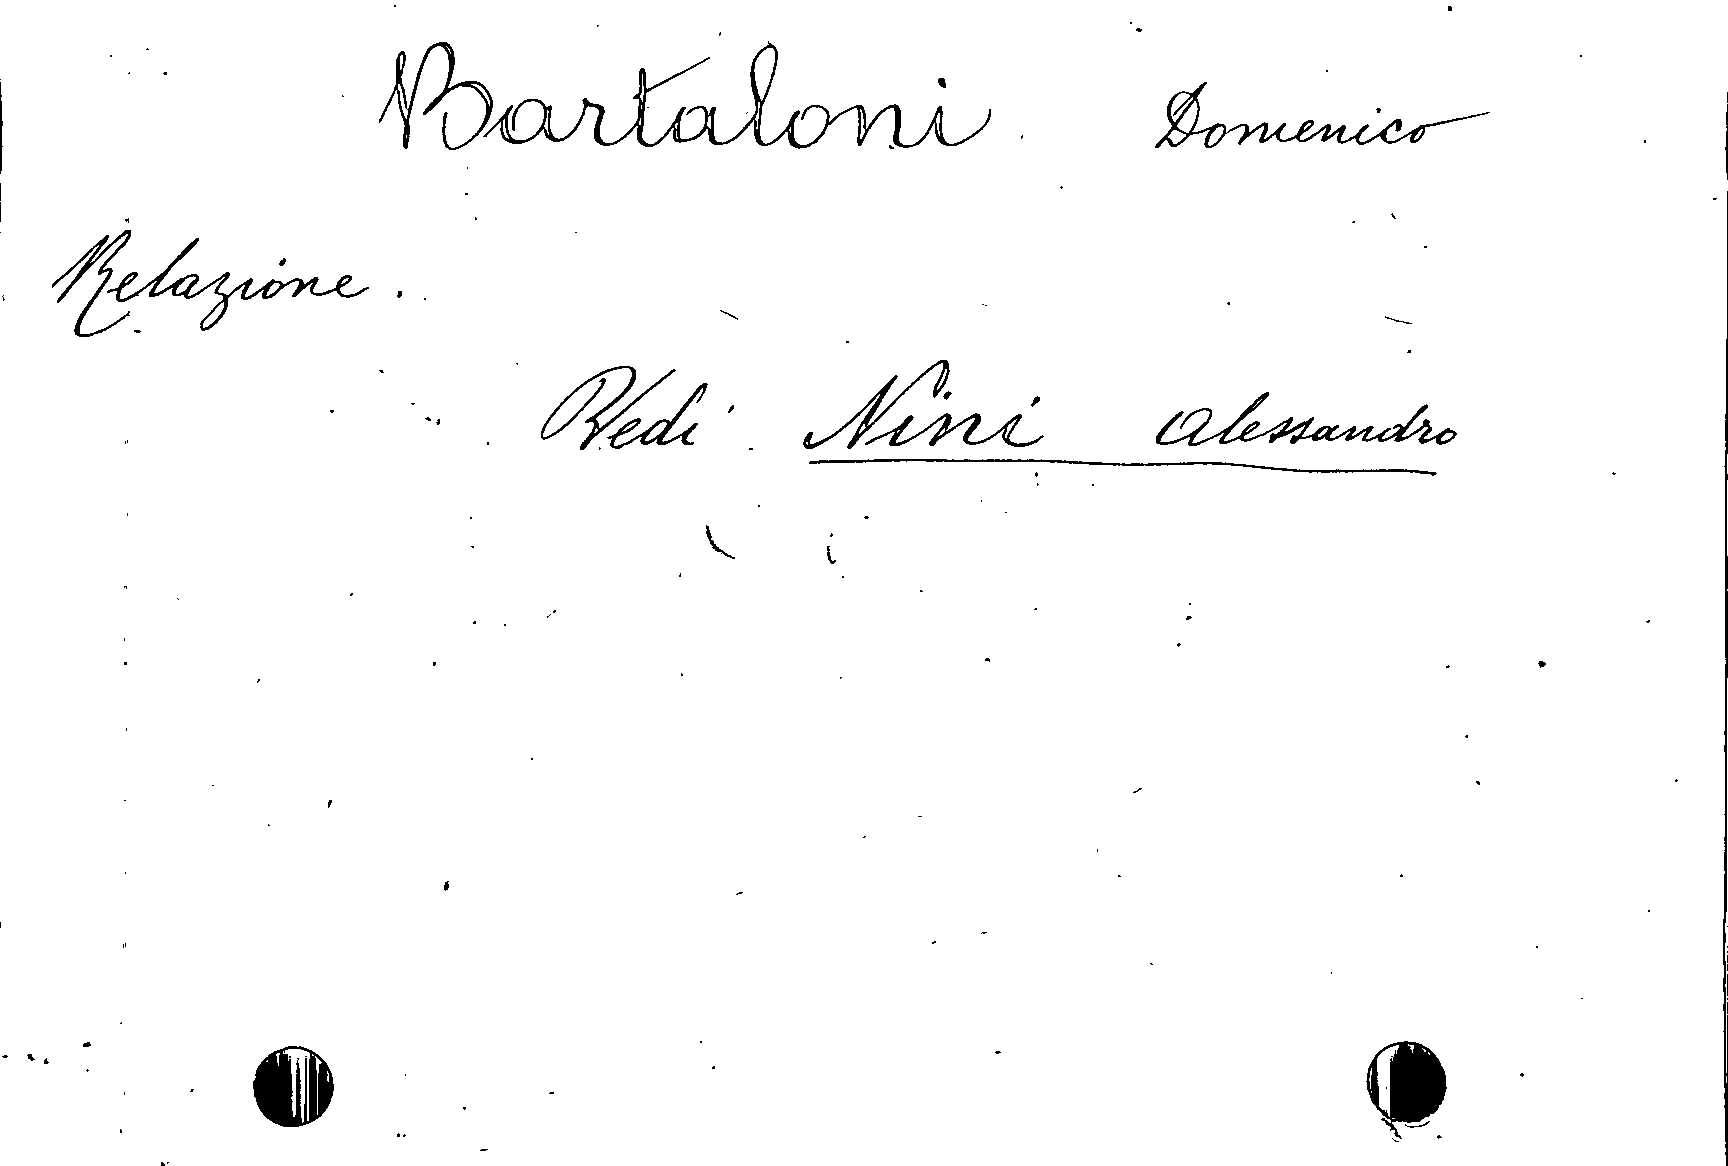 Bartaloni Domenico
Relazione.
Vedi Nini Alessandro